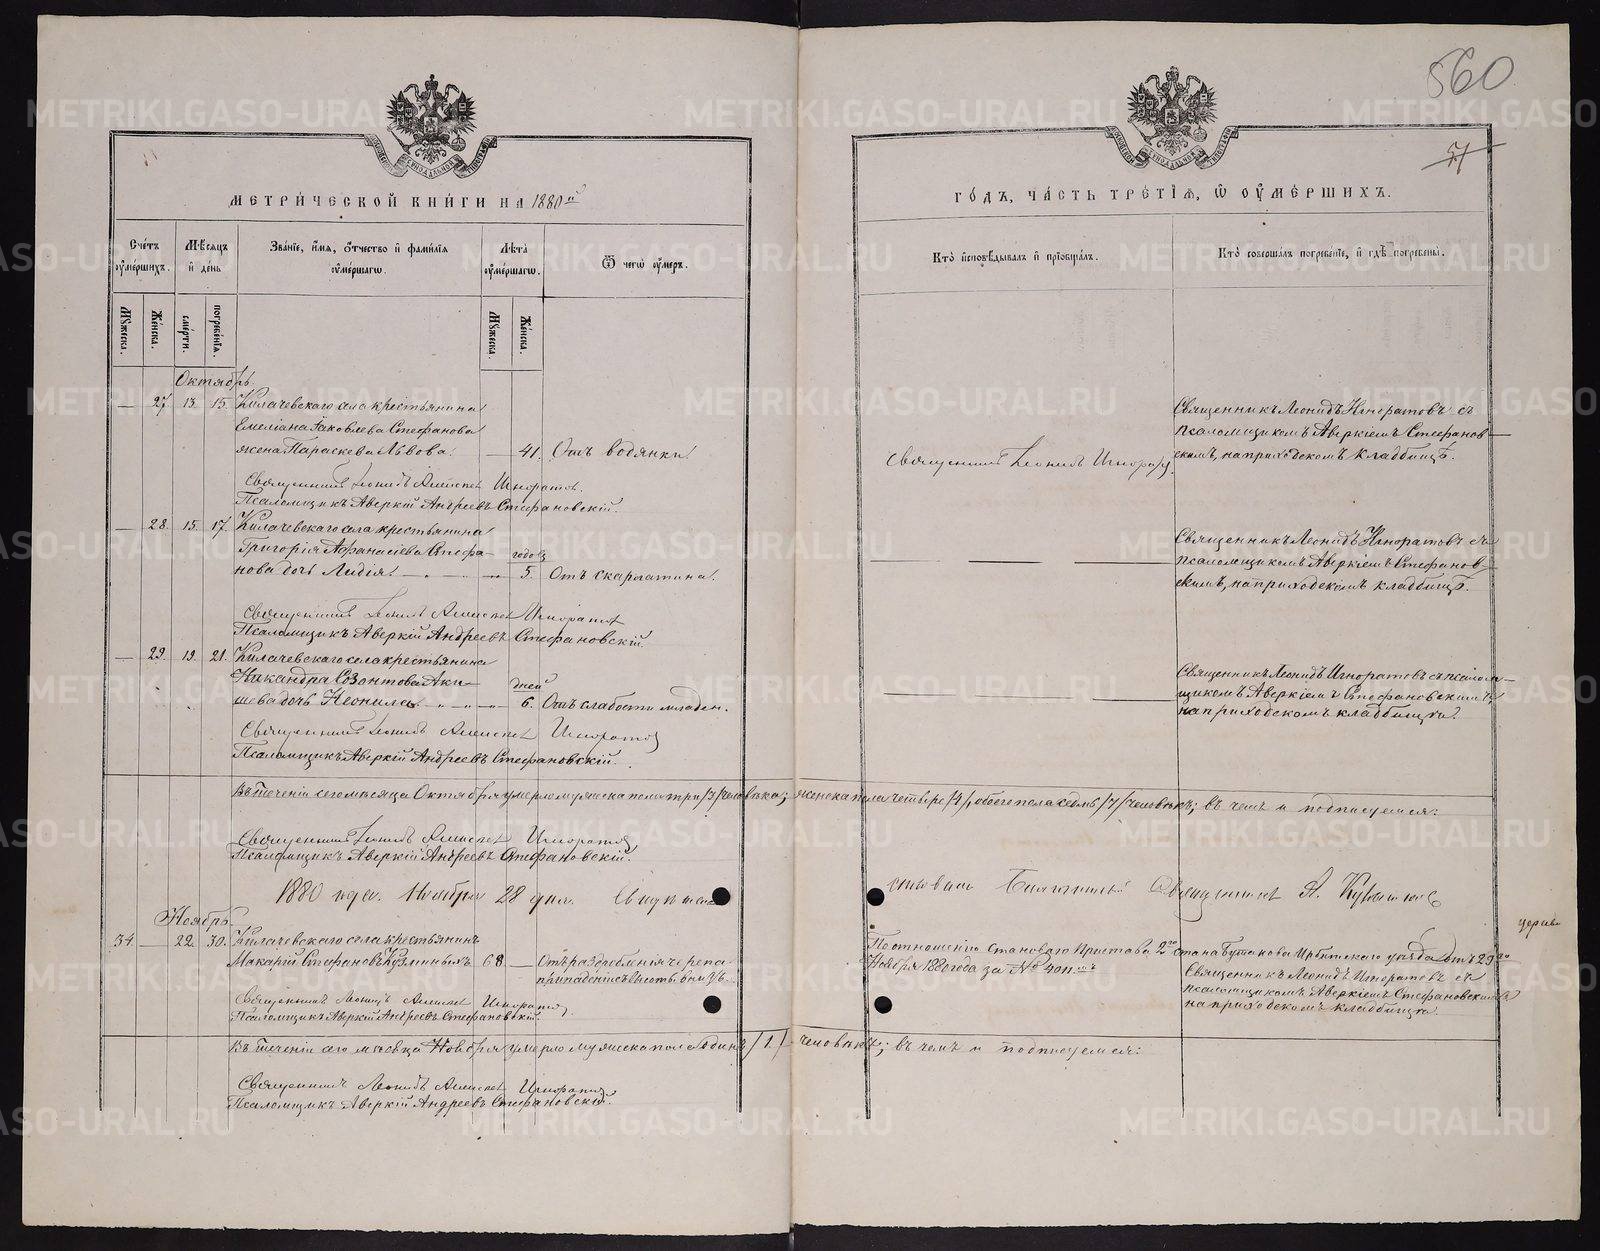 560
51
МЕТРИ́ЧЕСКОЙ КНИ́ГИ НА 1880 й
ГО́ДЪ, ЧА́СТЬ ТРЕ́ТІѦ, Ѡ ОУМЕ́РШИХЪ.
Сче́тъ оуме́ршихъ.
Мѣ́сѧцъ и де́нь.
Зва́нїе, и́мѧ, о́тчество и фами́лїѧ оуме́ршагѡ.
Лѣ́та оуме́ршагѡ.
Ѿ чегѡ̀ оу́меръ.
Кто̀ и҆сповѣ́дывалъ и҆ прїѡбща́лъ.
Кто̀ соверша́лъ погребе́нїе, и҆ гдѣ̀ погребены̀.
Мꙋ́жеска.
Же́нска.
сме́рти.
погребе́нїѧ.
Мꙋ́жеска.
Же́нска.
Октябрь.
— 27. 13. 15. Килачевскаго села крестьянина
Емеліана Іаковлева Стефанова
жена Параскева Львова. — 41. Отъ водянки.
Священникъ Леонидъ Игноратовъ
Священникъ Леонидъ Игноратовъ съ
псаломщикомъ Аверкіемъ Стефанов-
скимъ, на приходскомъ кладбищѣ.
Священникъ Леонидъ Алексѣевъ Игноратовъ.
Псаломщикъ Аверкій Андреевъ Стефановскій.
— 28. 15. 17. Килачевскаго села крестьянина
Григорія Афанасіева Стефа- годовъ
нова дочь Лидія. — „ — „ — „ 5. Отъ скарлатины.
Священникъ Леонидъ Игноратовъ съ
псаломщикомъ Аверкіемъ Стефанов-
скимъ, на приходскомъ кладбищѣ.
Священникъ Леонидъ Алексѣевъ Игноратовъ
Псаломщикъ Аверкій Андреевъ Стефановскій.
— 29. 19. 21. Килачевскаго села крестьянина
Никандра Созонтова Аки- дней
шева дочь Неонила — „ — „ — 6. Отъ слабости младен.
Священникъ Леонидъ Игноратовъ съ псалом-
щикомъ Аверкіемъ Стефановскимъ,
на приходскомъ кладбищѣ.
Священникъ Леонидъ Алексѣевъ Игноратовъ
Псаломщикъ Аверкій Андреевъ Стефановскій.
Въ теченіи сего мѣсяца Октября умерло мужеска пола три /3/ человѣка; женска пола четыре /4/, обоего пола семь /7/ человѣкъ; въ чемъ и подписуемся:
Священникъ Леонидъ Алексѣевъ Игноратовъ
Псаломщикъ Аверкій Андреевъ Стефановскій.
1880 года. Ноября 28 дня. Священникъ А.
Ноябрь.
34 — 22. 30. Килачевскаго села крестьянинъ
Макарій Стефановъ Кузминыхъ 68. — Отъ раздробленія черепа
при паденіи съ высоты внизъ.
По отношенію Становаго Пристава 2го стана Бутакова Ирбитскаго уѣзда отъ 29го
Ноября 1880 года за № 4011.мъ
Священникъ Леонидъ Игноратовъ съ
псаломщикомъ Аверкіемъ Стефановскимъ
на приходскомъ кладбищѣ.
Священникъ Леонидъ Алексѣевъ Игноратовъ.
Псаломщикъ Аверкій Андреевъ Стефановскій.
Въ теченіи сего мѣсяца Ноября умерло мужеска пола одинъ /1/ человѣкъ; въ чемъ и подписуемся:
Священникъ Леонидъ Алексѣевъ Игноратовъ.
Псаломщикъ Аверкій Андреевъ Стефановскій.
METRIKI.GASO-URAL.RU